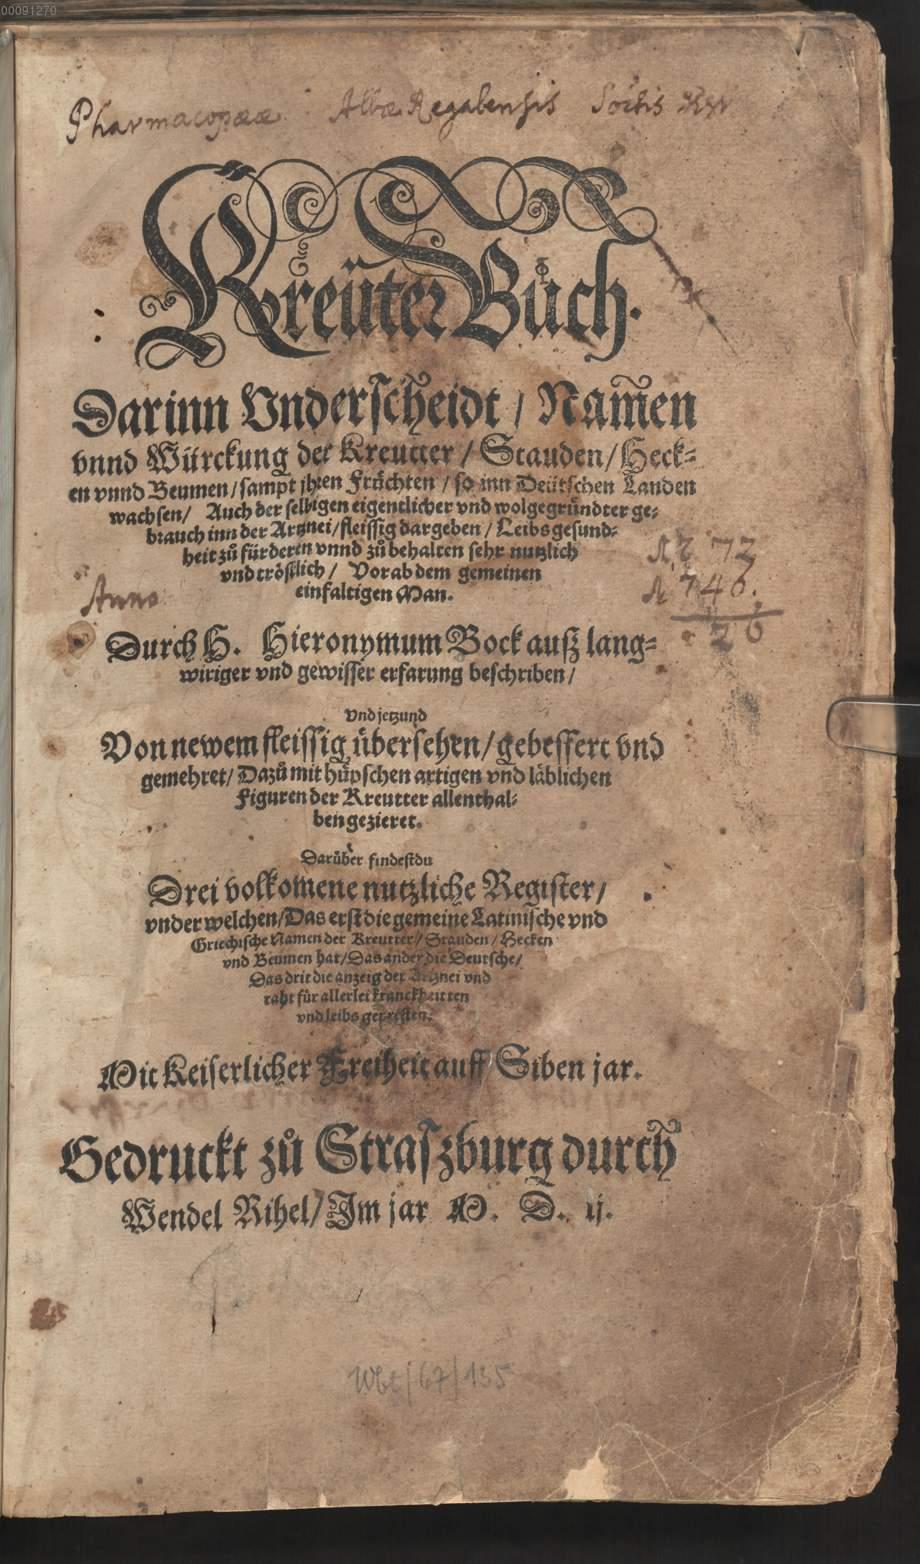 00091270
Pharmacopææ Albæ Regalensis
Kreüter Bůch.
Darinn Vnderscheidt / Namen
vnnd Würckung der Kreutter / Stauden / Heck-
en vnnd Beumen / sampt jhren Früchten / so inn Deütschen Landen
wachsen / Auch der selbigen eigentlicher vnd wolgegründter ge-
brauch inn der Artznei / fleissig dargeben / Leibs gesund-
heit zů fürderen vnnd zů behalten sehr nutzlich
vnd tröstlich / Vorab dem gemeinen
einfaltigen Man.
72
746.
26
Anno
Durch H. Hieronymum Bock auß lang-
wiriger vnd gewisser erfarung beschriben /
Vnd jetzund
Von newem fleissig übersehen / gebessert vnd
gemehret / Dazů mit hüpschen artigen vnd läblichen
Figuren der Kreutter allenthal-
ben gezieret.
Darüber findestdu
Drei volkomene nutzliche Register /
vnder welchen / Das erst die gemeine Latinische vnd
Griechische Namen der Kreutter / Stauden / Hecken
vnd Beumen hat / Das ander die Deutsche /
Das drit die anzeig der Artznei vnd
raht für allerlei kranckheitten
vnd leibs gepresten.
Mit Keiserlicher Freiheit auff Siben jar.
Gedruckt zů Straszburg durch
Wendel Rihel / Im jar M. D. lj.
Wbt/67/135